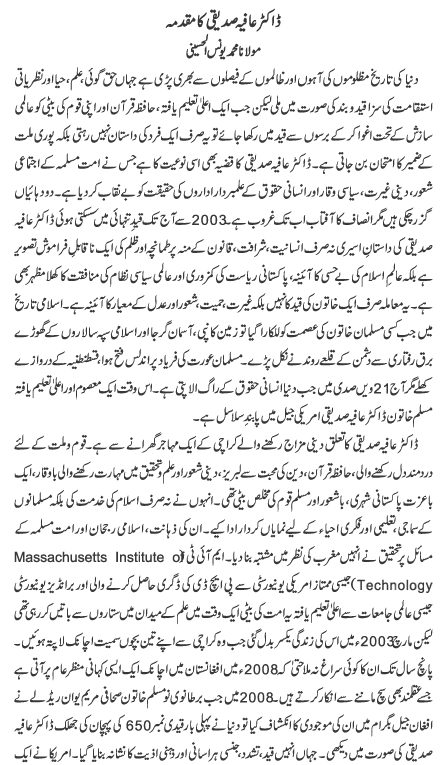 ڈاکٹر عافیہ صدیقی کا مقدمہ
مولانا محمد یونس الحسینی
دنیا کی تاریخ مظلوموں کی آہوں اور ظالموں کے فیصلوں سے بھری پڑی ہے جہاں حق گوئی علم، حیا اور نظریاتی
استقامت کی سزا قید و بند کی صورت میں ملی لیکن جب ایک اعلیٰ تعلیم یافتہ، حافظہ قرآن اور اپنی قوم کی بیٹی کو عالمی
سازش کے تحت اغوا کر کے برسوں سے قید میں رکھا جائے تو یہ صرف ایک فرد کی داستان نہیں رہتی بلکہ پوری ملت
کے ضمیر کا امتحان بن جاتی ہے۔ ڈاکٹر عافیہ صدیقی کا قضیہ بھی اسی نوعیت کا ہے جس نے امت مسلمہ کے اجتماعی
شعور، دینی غیرت، سیاسی وقار اور انسانی حقوق کے علمبردار اداروں کی حقیقت کو بے نقاب کر دیا ہے۔ دو دہائیاں
گزر چکی ہیں مگر انصاف کا آفتاب اب تک غروب ہے۔ 2003 سے آج تک قید تنہائی میں سسکتی ہوئی ڈاکٹر عافیہ
صدیقی کی داستانِ اسیری نہ صرف انسانیت، شرافت، قانون کے منہ پر طمانچہ اور ظلم کی ایک ناقابلِ فراموش تصویر
ہے بلکہ عالمِ اسلام کی بے حسی کا آئینہ، پاکستانی ریاست کی کمزوری اور عالمی سیاسی نظام کی منافقت کا کھلا مظہر بھی
ہے۔ یہ معاملہ صرف ایک خاتون کی قید کا نہیں بلکہ غیرت، حمیت، شعور اور عدل کے معیار کا آئینہ ہے۔ اسلامی تاریخ
میں جب کسی مسلمان خاتون کی عصمت کو للکارا گیا تو زمین کانپی، آسمان گرجا اور اسلامی سپہ سالاروں کے گھوڑے
برق رفتاری سے دشمن کے قلعے روندنے نکل پڑے۔ مسلمان عورت کی فریاد پر اندلس فتح ہوا، قسطنطنیہ کے دروازے
کھلے مگر آج 21 ویں صدی میں جب دنیا انسانی حقوق کے راگ الاپتی ہے۔ اس وقت ایک معصوم اور اعلیٰ تعلیم یافتہ
مسلم خاتون ڈاکٹر عافیہ صدیقی امریکی جیل میں پابندِ سلاسل ہے۔
ڈاکٹر عافیہ صدیقی کا تعلق دینی مزاج رکھنے والے کراچی کے ایک مہاجر گھرانے سے ہے۔ قوم و ملت کے لئے
دردمند دل رکھنے والی، حافظہ قرآن، دین کی محبت سے لبریز، دینی شعور اور علم و تحقیق میں مہارت رکھنے والی باوقار، ایک
باعزت پاکستانی شہری، باشعور اور مسلم قوم کی مخلص بیٹی تھی۔ انہوں نے نہ صرف اسلام کی خدمت کی بلکہ مسلمانوں
کے سماجی، تعلیمی اور فکری احیاء کے لیے نمایاں کردار ادا کیے۔ ان کی ذہانت، اسلامی رجحان اور امت مسلمہ کے
مسائل پر تحقیق نے انہیں مغرب کی نظر میں مشتبہ بنا دیا۔ ایم آئی ٹی (Massachusetts Institute of
Technology) جیسی ممتاز امریکی یونیورسٹی سے پی ایچ ڈی کی ڈگری حاصل کرنے والی اور برانڈیز یونیورسٹی
جیسی عالمی جامعات سے اعلیٰ تعلیم یافتہ یہ امت کی بیٹی ایک وقت میں علم کے میدان میں ستاروں سے باتیں کر رہی تھی
لیکن مارچ 2003ء میں اس کی زندگی یکسر بدل گئی جب وہ کراچی سے اپنے تین بچوں سمیت اچانک لاپتہ ہوئیں۔
پانچ سال تک ان کا کوئی سراغ نہ ملا حتیٰ کہ 2008ء میں افغانستان میں اچانک ایک ایسی کہانی منظر عام پر آتی ہے
جسے عقلمند بھی سچ ماننے سے انکار کرتے ہیں۔ 2008 میں جب برطانوی نو مسلم خاتون صحافی مریم یوان ریڈلے نے
افغان جیل بگرام میں ان کی موجودگی کا انکشاف کیا تو دنیا نے پہلی بار قیدی نمبر 650 کی پہچان کی جھلک ڈاکٹر عافیہ
صدیقی کی صورت میں دیکھی۔ جہاں انہیں قید، تشدد، جنسی ہراسانی اور ذہنی اذیت کا نشانہ بنایا گیا۔ امریکا نے ایک